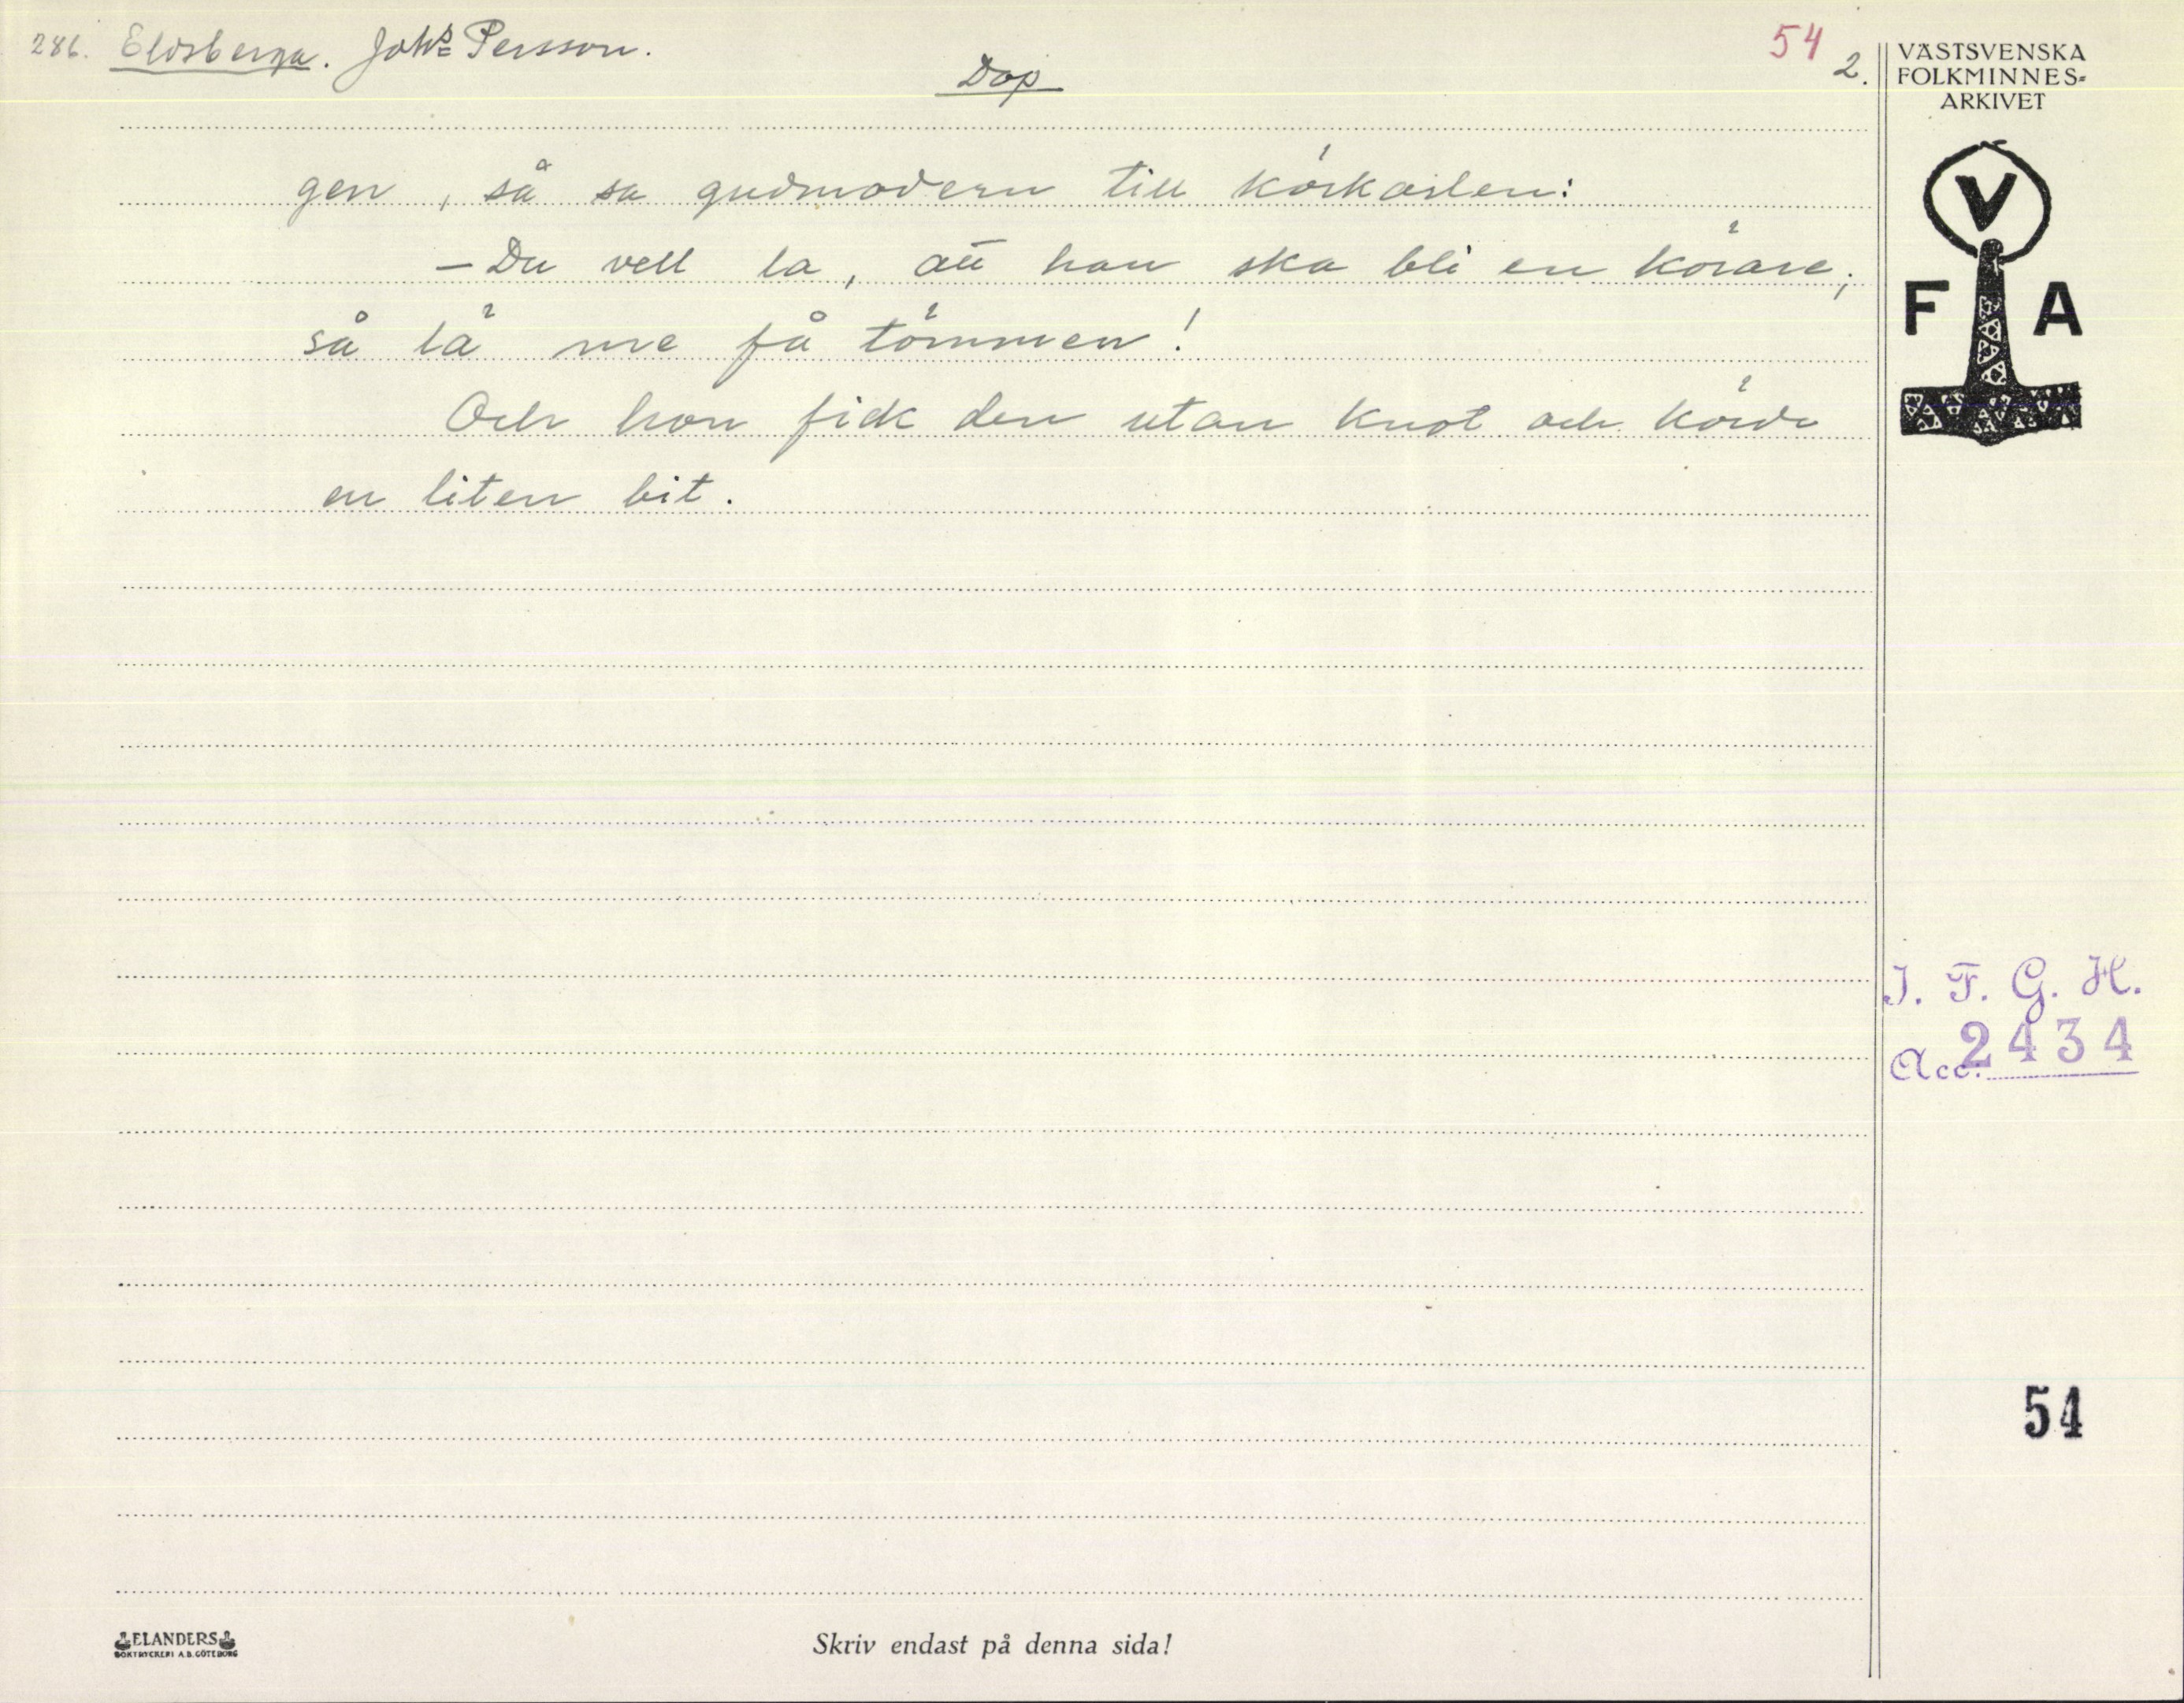 286. Eldsberga. Johs Persson.
54 2.
Dop
gen, så sa gudmodern till körkarlen:
– Du vell la, att han ska bli en körare;
så lä me få tömmen!
Och hon fick den utan knot och körde
en liten bit.
VÄSTSVENSKA
FOLKMINNES-
ARKIVET
V
F A
I. F. G. H.
Acc. 2434
54
ELANDERS
BOKTRYCKERI A.B. GÖTEBORG
Skriv endast på denna sida!